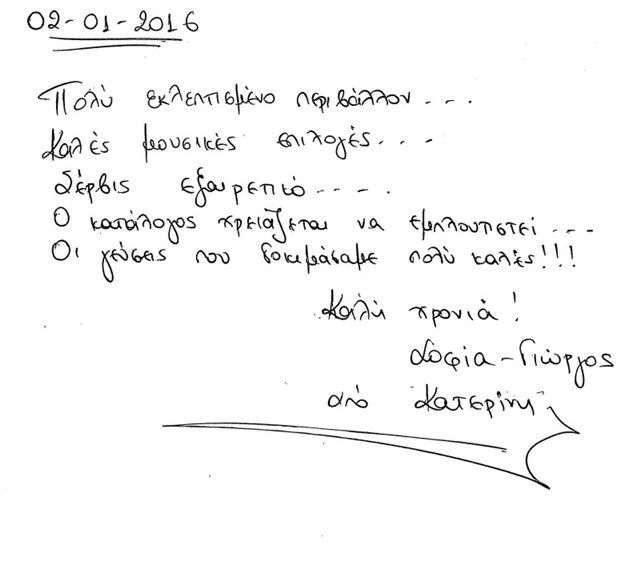 02-01-2016
Πολύ εκλεπτισμένο περιβάλλον...
Καλές μουσικές επιλογές...
Σέρβις εξαιρετικό....
Ο κατάλογος χρειάζεται να εμπλουτιστεί...
Οι γεύσεις που δοκιμάσαμε πολύ καλές!!!
Καλή χρονιά!
Σοφία-Γιώργος
από Κατερίνη